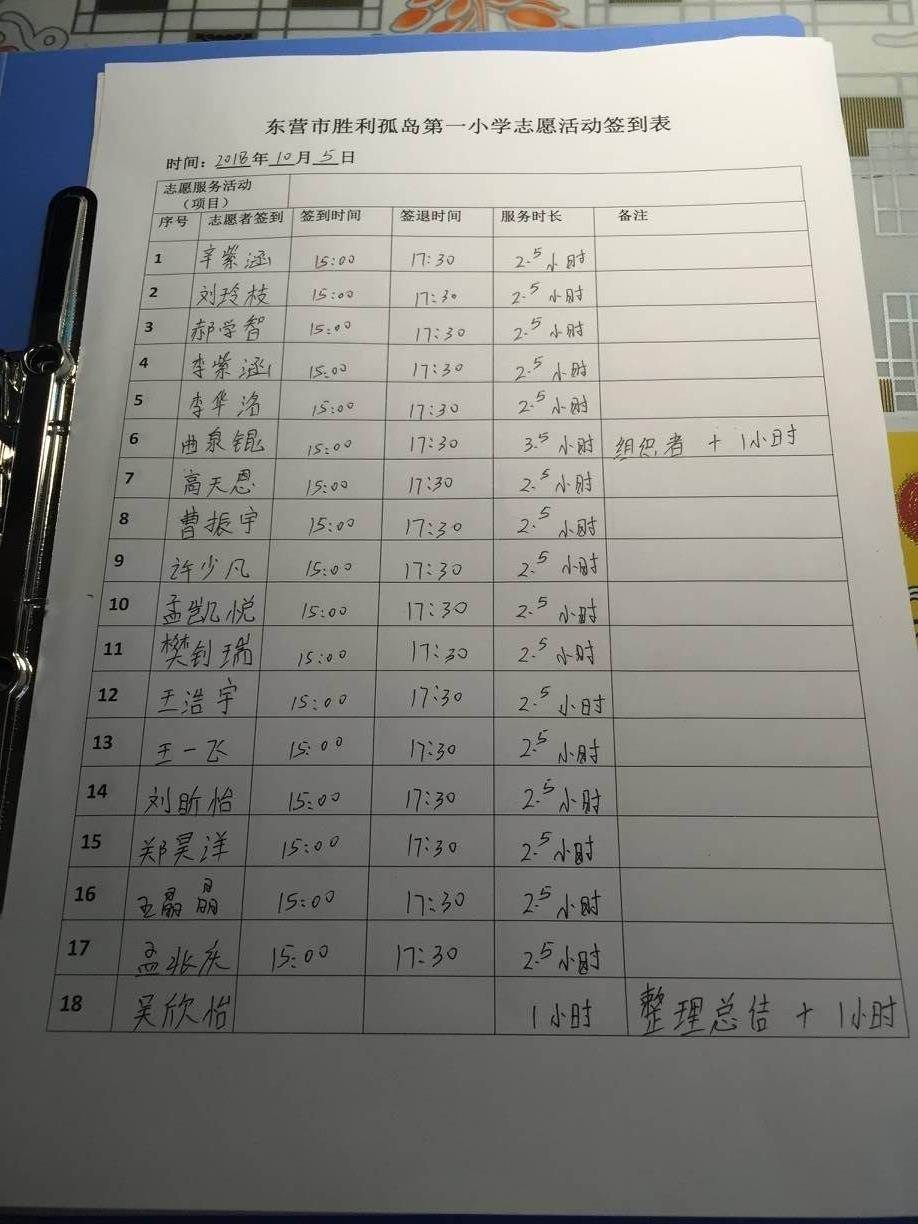 东营市胜利孤岛第一小学志愿活动签到表
时间：2018年10月5日
志愿服务活动（项目）
序号 志愿者签到 签到时间 签退时间 服务时长 备注
1 辛紫涵 15:00 17:30 2.5小时
2 刘玲枝 15:00 17:30 2.5小时
3 郝学智 15:00 17:30 2.5小时
4 李紫涵 15:00 17:30 2.5小时
5 李华洛 15:00 17:30 2.5小时
6 曲泉锟 15:00 17:30 3.5小时 组织者 + 1小时
7 高天恩 15:00 17:30 2.5小时
8 曹振宇 15:00 17:30 2.5小时
9 许少凡 15:00 17:30 2.5小时
10 孟凯悦 15:00 17:30 2.5小时
11 樊钊瑞 15:00 17:30 2.5小时
12 王浩宇 15:00 17:30 2.5小时
13 王一飞 15:00 17:30 2.5小时
14 刘昕怡 15:00 17:30 2.5小时
15 郑昊洋 15:00 17:30 2.5小时
16 王晶晶 15:00 17:30 2.5小时
17 孟兆庆 15:00 17:30 2.5小时
18 吴欣怡 1小时 整理总结 + 1小时